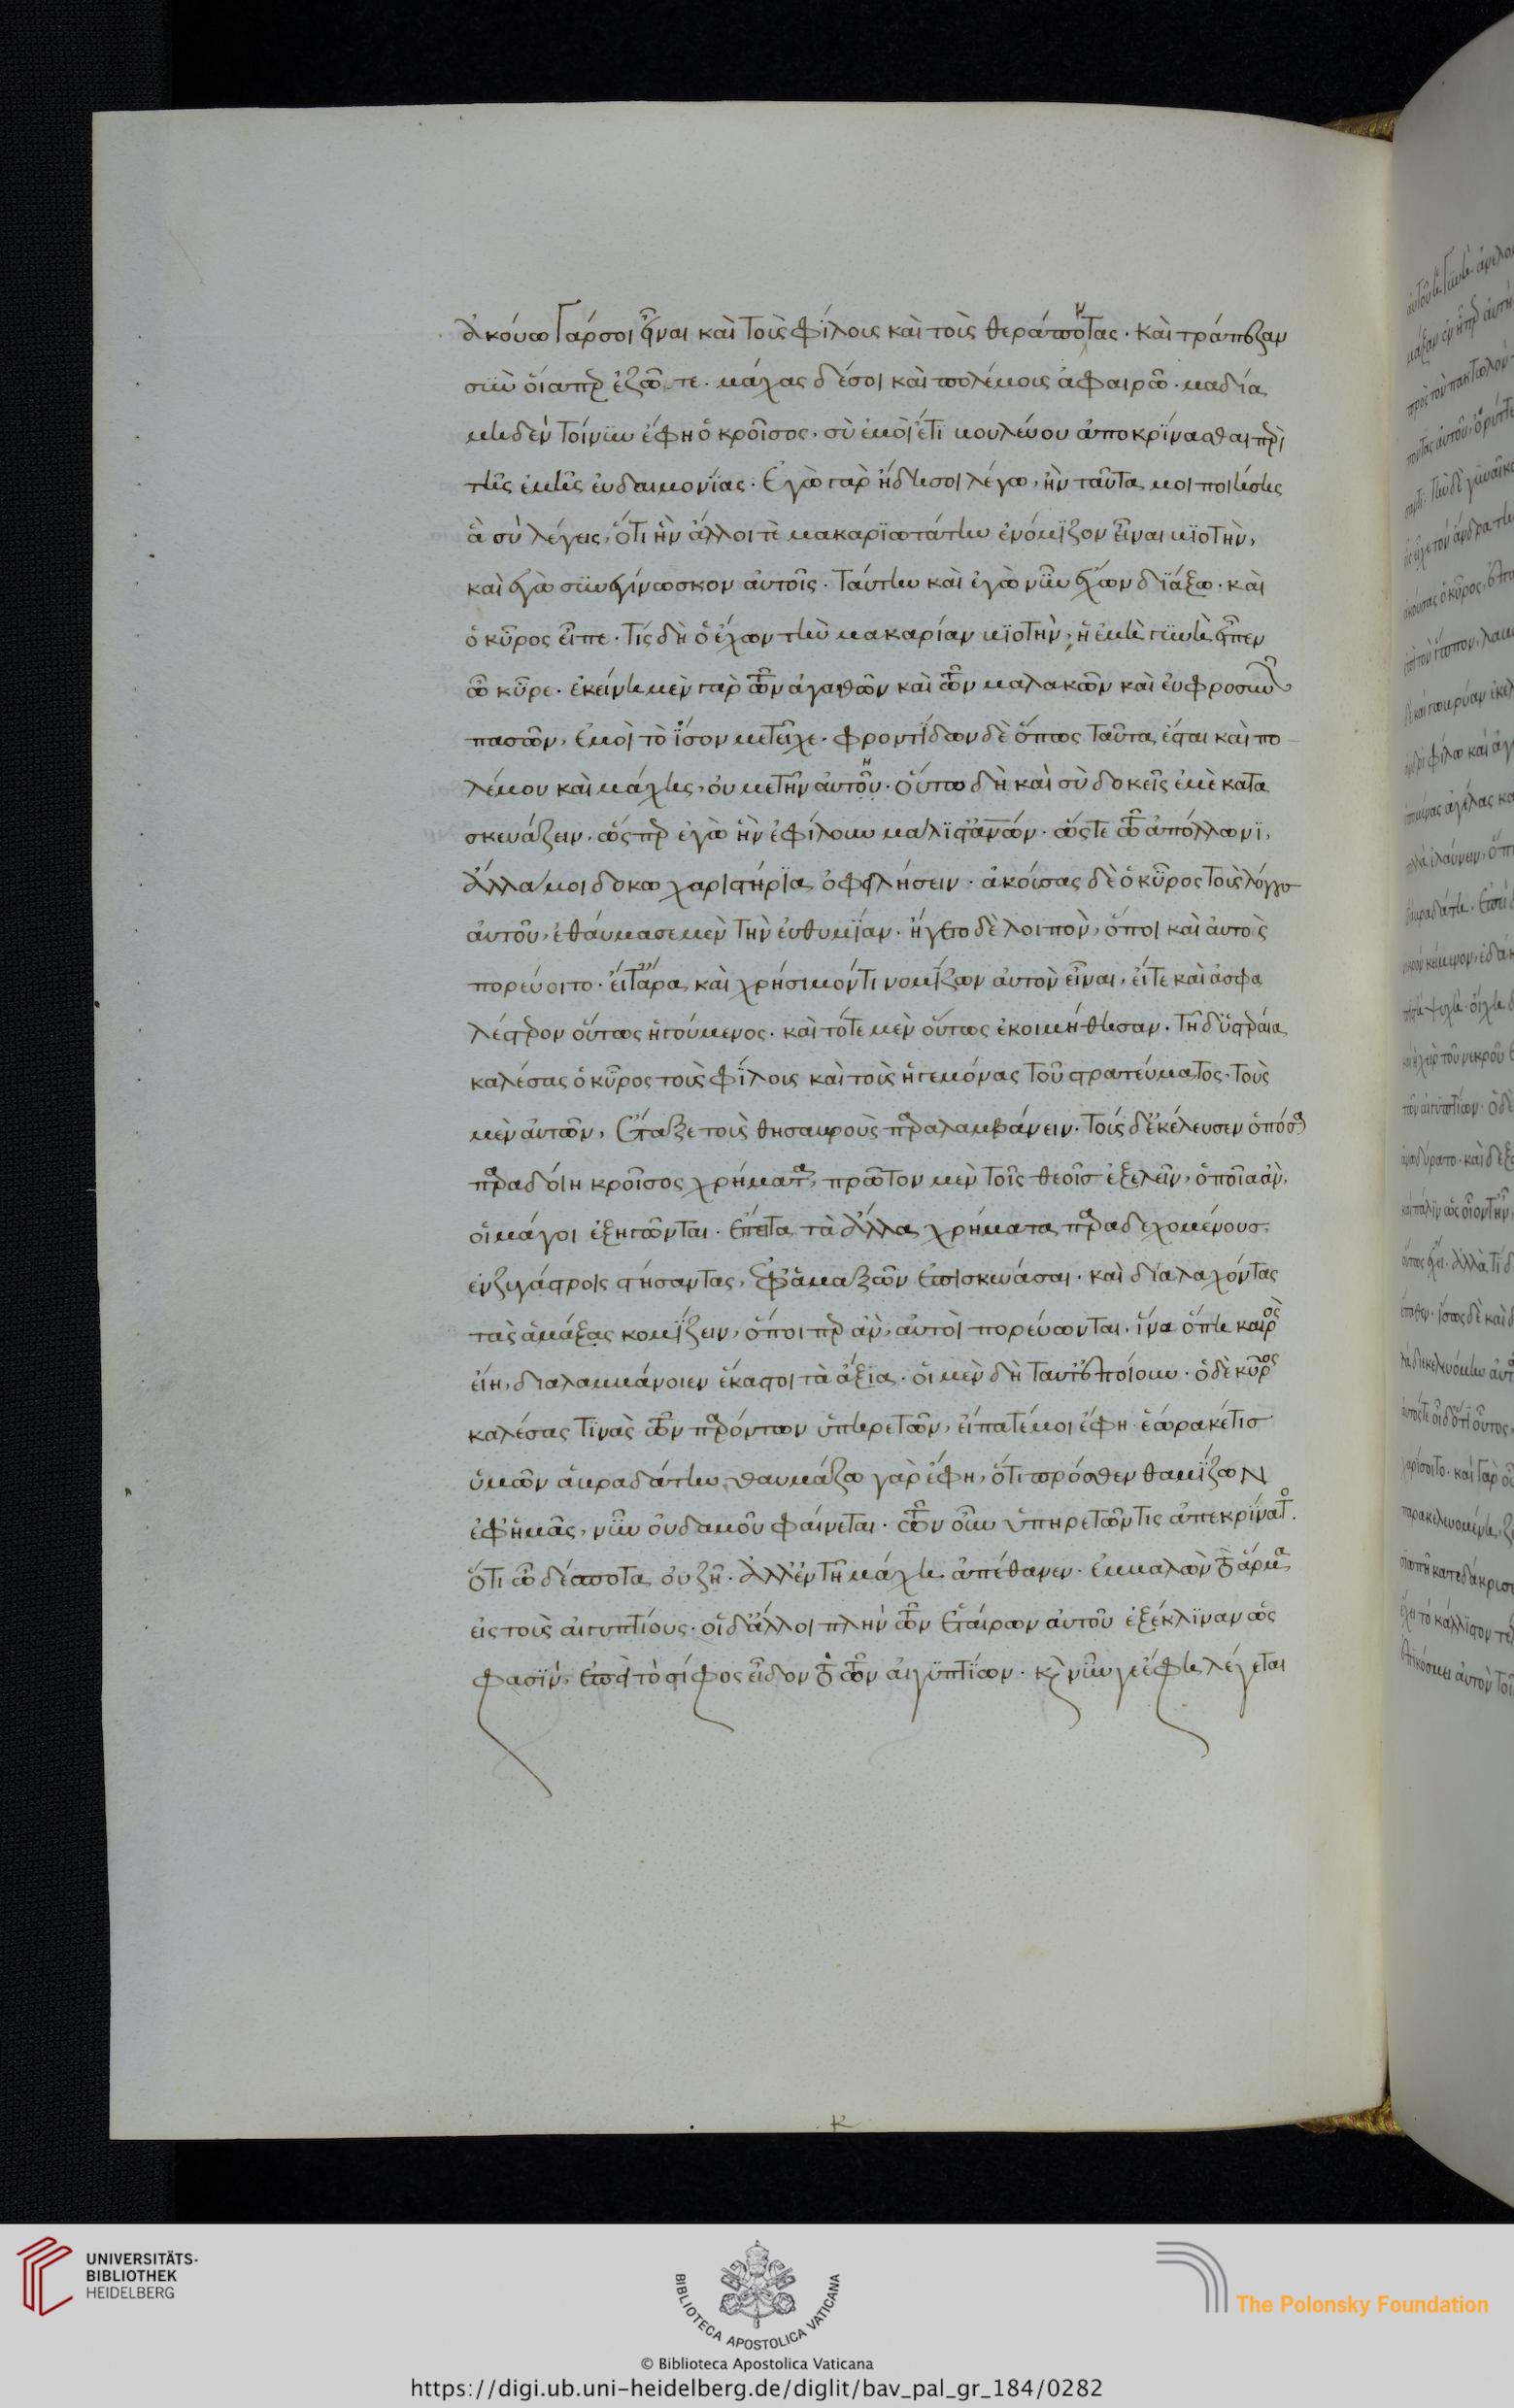 ἄκουσαν γάρ σοι εἶναι καὶ τοὺς φίλους καὶ τοὺς θεράποντας. καὶ τράπεζαν
σὺν οἵαπερ ἔζων τε. μάχας δέ σοι καὶ πολέμους ἀφαιρῶ. μὰ δία
μηδὲν τοίνυν ἔφη ὁ κροῖσος, σὺ ἐμοὶ ἔτι βουλεύου ἀποκρίνασθαι περὶ
τῆς ἐμῆς εὐδαιμονίας. ἐγὼ γὰρ ἤδη σοι λέγω, ἢν ταῦτα μοι ποιήσης
ἃ σὺ λέγεις, ὅτι ἣν ἄλλοι τὲ μακαριωτάτην ἐνόμιζον εἶναι βιοτὴν,
καὶ ἐγὼ συνεγίνωσκον αὐτοῖς. ταύτην καὶ ἐγὼ νῦν ἔχων διάξω. καὶ
ὁ κῦρος εἶπε. τίς δὴ ὁ ἔχων τὴν μακαρίαν βιοτὴν, ἡ ἐμὴ γυνὴ εἶπεν
ὦ κῦρε. ἐκείνη μὲν γὰρ τῶν ἀγαθῶν καὶ τῶν μαλακῶν καὶ εὐφροσυνῶν
πασῶν, ἐμοὶ τὸ ἴσον μετεῖχε. φροντίδων δὲ ὅπως ταῦτα ἔσται καὶ πο
λέμου καὶ μάχης, οὐ μετῆν αὐτῆ. οὕτω δὴ καὶ σὺ δοκεῖς ἐμὲ κατα
σκευάζειν. ὥσπερ ἐγὼ ἣν ἐφίλουν μάλιστα ἀνθρώπων. ὥστε τῶ ἀπόλλωνι,
ἄλλα μοι δοκῶ χαριστήρια ὀφειλήσειν. ἀκούσας δὲ ὁ κῦρος τοὺς λόγους
αὐτοῦ, ἐθαύμασε μὲν τὴν εὐθυμίαν. ἤγετο δὲ λοιπὸν, ὅποι καὶ αὐτὸς
πορεύοιτο. εἴτ' ἄρα καὶ χρήσιμόν τι νομίζων αὐτὸν εἶναι, εἴτε καὶ ἀσφα
λέστερον οὕτως ἡγούμενος. καὶ τότε μὲν οὕτως ἐκοιμήθησαν. τῆ δ' ὑστεραία
καλέσας ὁ κῦρος τοὺς φίλους καὶ τοὺς ἡγεμόνας τοῦ στρατεύματος. τοὺς
μὲν αὐτῶν, ἔταξε τοὺς θησαυροὺς παραλαμβάνειν. τοὺς δ' ἐκέλευσεν ὁπόσα
παραδοίη κροῖσος χρήματα, πρῶτον μὲν τοῖς θεοῖς ἐξελεῖν, ὁποῖα ἂν,
οἱ μάγοι ἐξηγῶνται. ἔπειτα τὰ ἄλλα χρήματα παραδεχομένους,
ἐν ζυγάστροις στήσαντας, ἐφ' ἁμαξῶν ἐπισκευάσαι. καὶ διαλαχόντας
τὰς ἁμάξας κομίζειν, ὅποι περ ἂν, αὐτοὶ πορεύωνται. ἵνα ὅπη καιρὸς
εἴη, διαλαμβάνοιεν ἕκαστοι τὰ ἄξια. οἱ μὲν δὴ ταῦτ' ἐποίουν. ὁ δὲ κῦρος
καλέσας τινὰς τῶν παρόντων ὑπηρετῶν, εἴπατέ μοι ἔφη ἑώρακέ τις
ὑμῶν ἀβραδάτην, θαυμάζω γὰρ ἔφη, ὅτι πρόσθεν θαμίζων
ἐφ' ἡμᾶς, νῦν οὐδαμοῦ φαίνεται. τῶν οὖν ὑπηρετῶν τις ἀπεκρίνατο.
ὅτι ὦ δέσποτα οὐ ζῆ. ἀλλ' ἐν τῆ μάχη ἀπέθανεν. ἐμβαλὼν τὸ ἅρμα
εἰς τοὺς αἰγυπτίους. οἱ δ' ἄλλοι πλὴν τῶν ἑταίρων αὐτοῦ ἐξέκλιναν ὥς
φασιν, ἐπεὶ τὸ στίφος εἶδον τὸ τῶν αἰγυπτίων. καὶ νῦν γε ἔφη λέγεται
κ
UNIVERSITÄTS-
BIBLIOTHEK
HEIDELBERG
BIBLIOTECA APOSTOLICA VATICANA
The Polonsky Foundation
© Biblioteca Apostolica Vaticana
https://digi.ub.uni-heidelberg.de/diglit/bav_pal_gr_184/0282